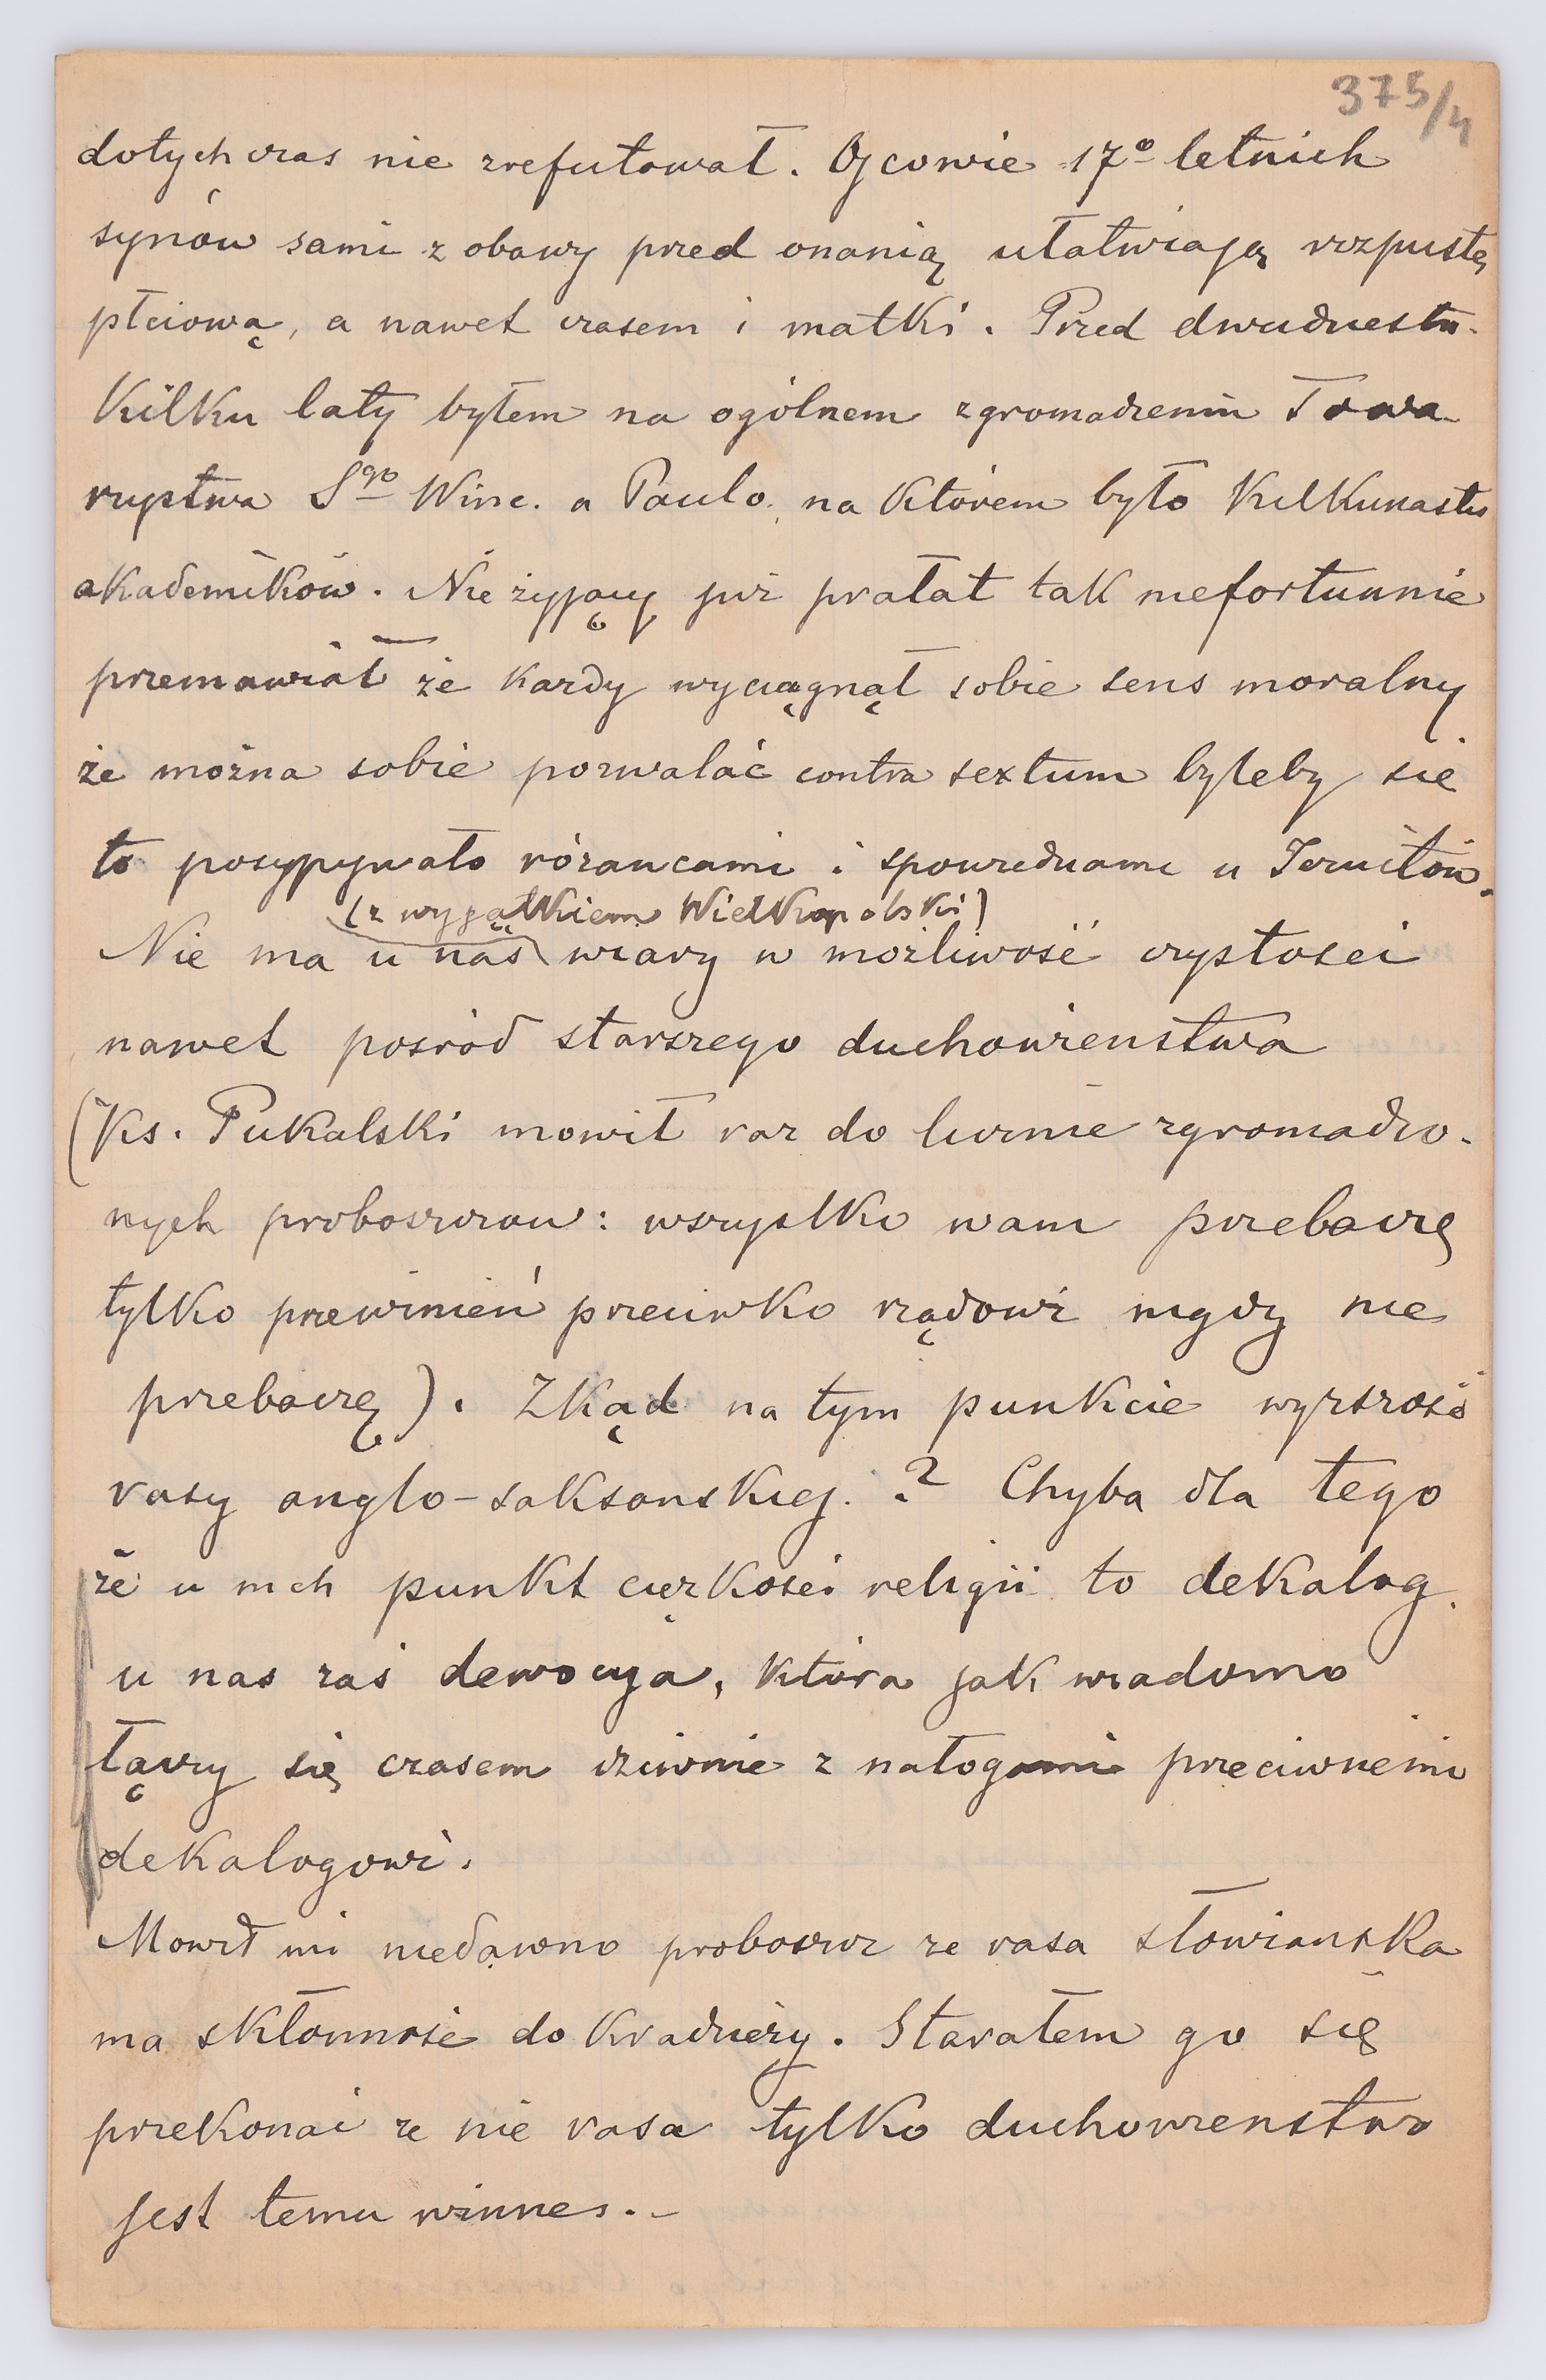 375/4
dotychczas nie zrefutował. Ojcowie 17o letnich
synów sami z obawy przed onanią ułatwiają rozpustę
płciową, a nawet czasem i matki. Przed dwudziestu-
kilku laty byłem na ogólnem zgromadzeniu Towa-
rzystwa Sgo Winc. a Paulo. na którem było kilkunastu
akademików. Nie żyjący już prałat tak niefortunnie
przemawiał że każdy wyciągnął sobie sens moralny
że można sobie pozwalać contra sextum byleby się
to posypywało różańcami i spowiedziami u Jezuitów.
(z wyjątkiem Wielkopolski)
Nie ma u nas wiary w możliwość czystości
nawet pośród starszego duchowieństwa
(Ks. Pukalski mowił raz do licznie zgromadzo-
nych proboszczow: wszystko wam przebaczę
tylko przewinień przeciwko rządowi nigdy nie
przebaczę). Zkąd na tym punkcie wyższość
rasy anglo-saksonskiej. ? Chyba dla tego
że u nich punkt cięzkości religii to dekalog.
u nas zaś dewocya, która jak wiadomo
łączy się czasem dziwnie z nałogami przeciwnemi
dekalogowi.
Mowił mi niedawno proboszcz ze rasa słowianska
ma skłonnośc do kradzieży. Starałem go się
przekonać ze nie rasa tylko duchowienstwo
jest temu winne.-